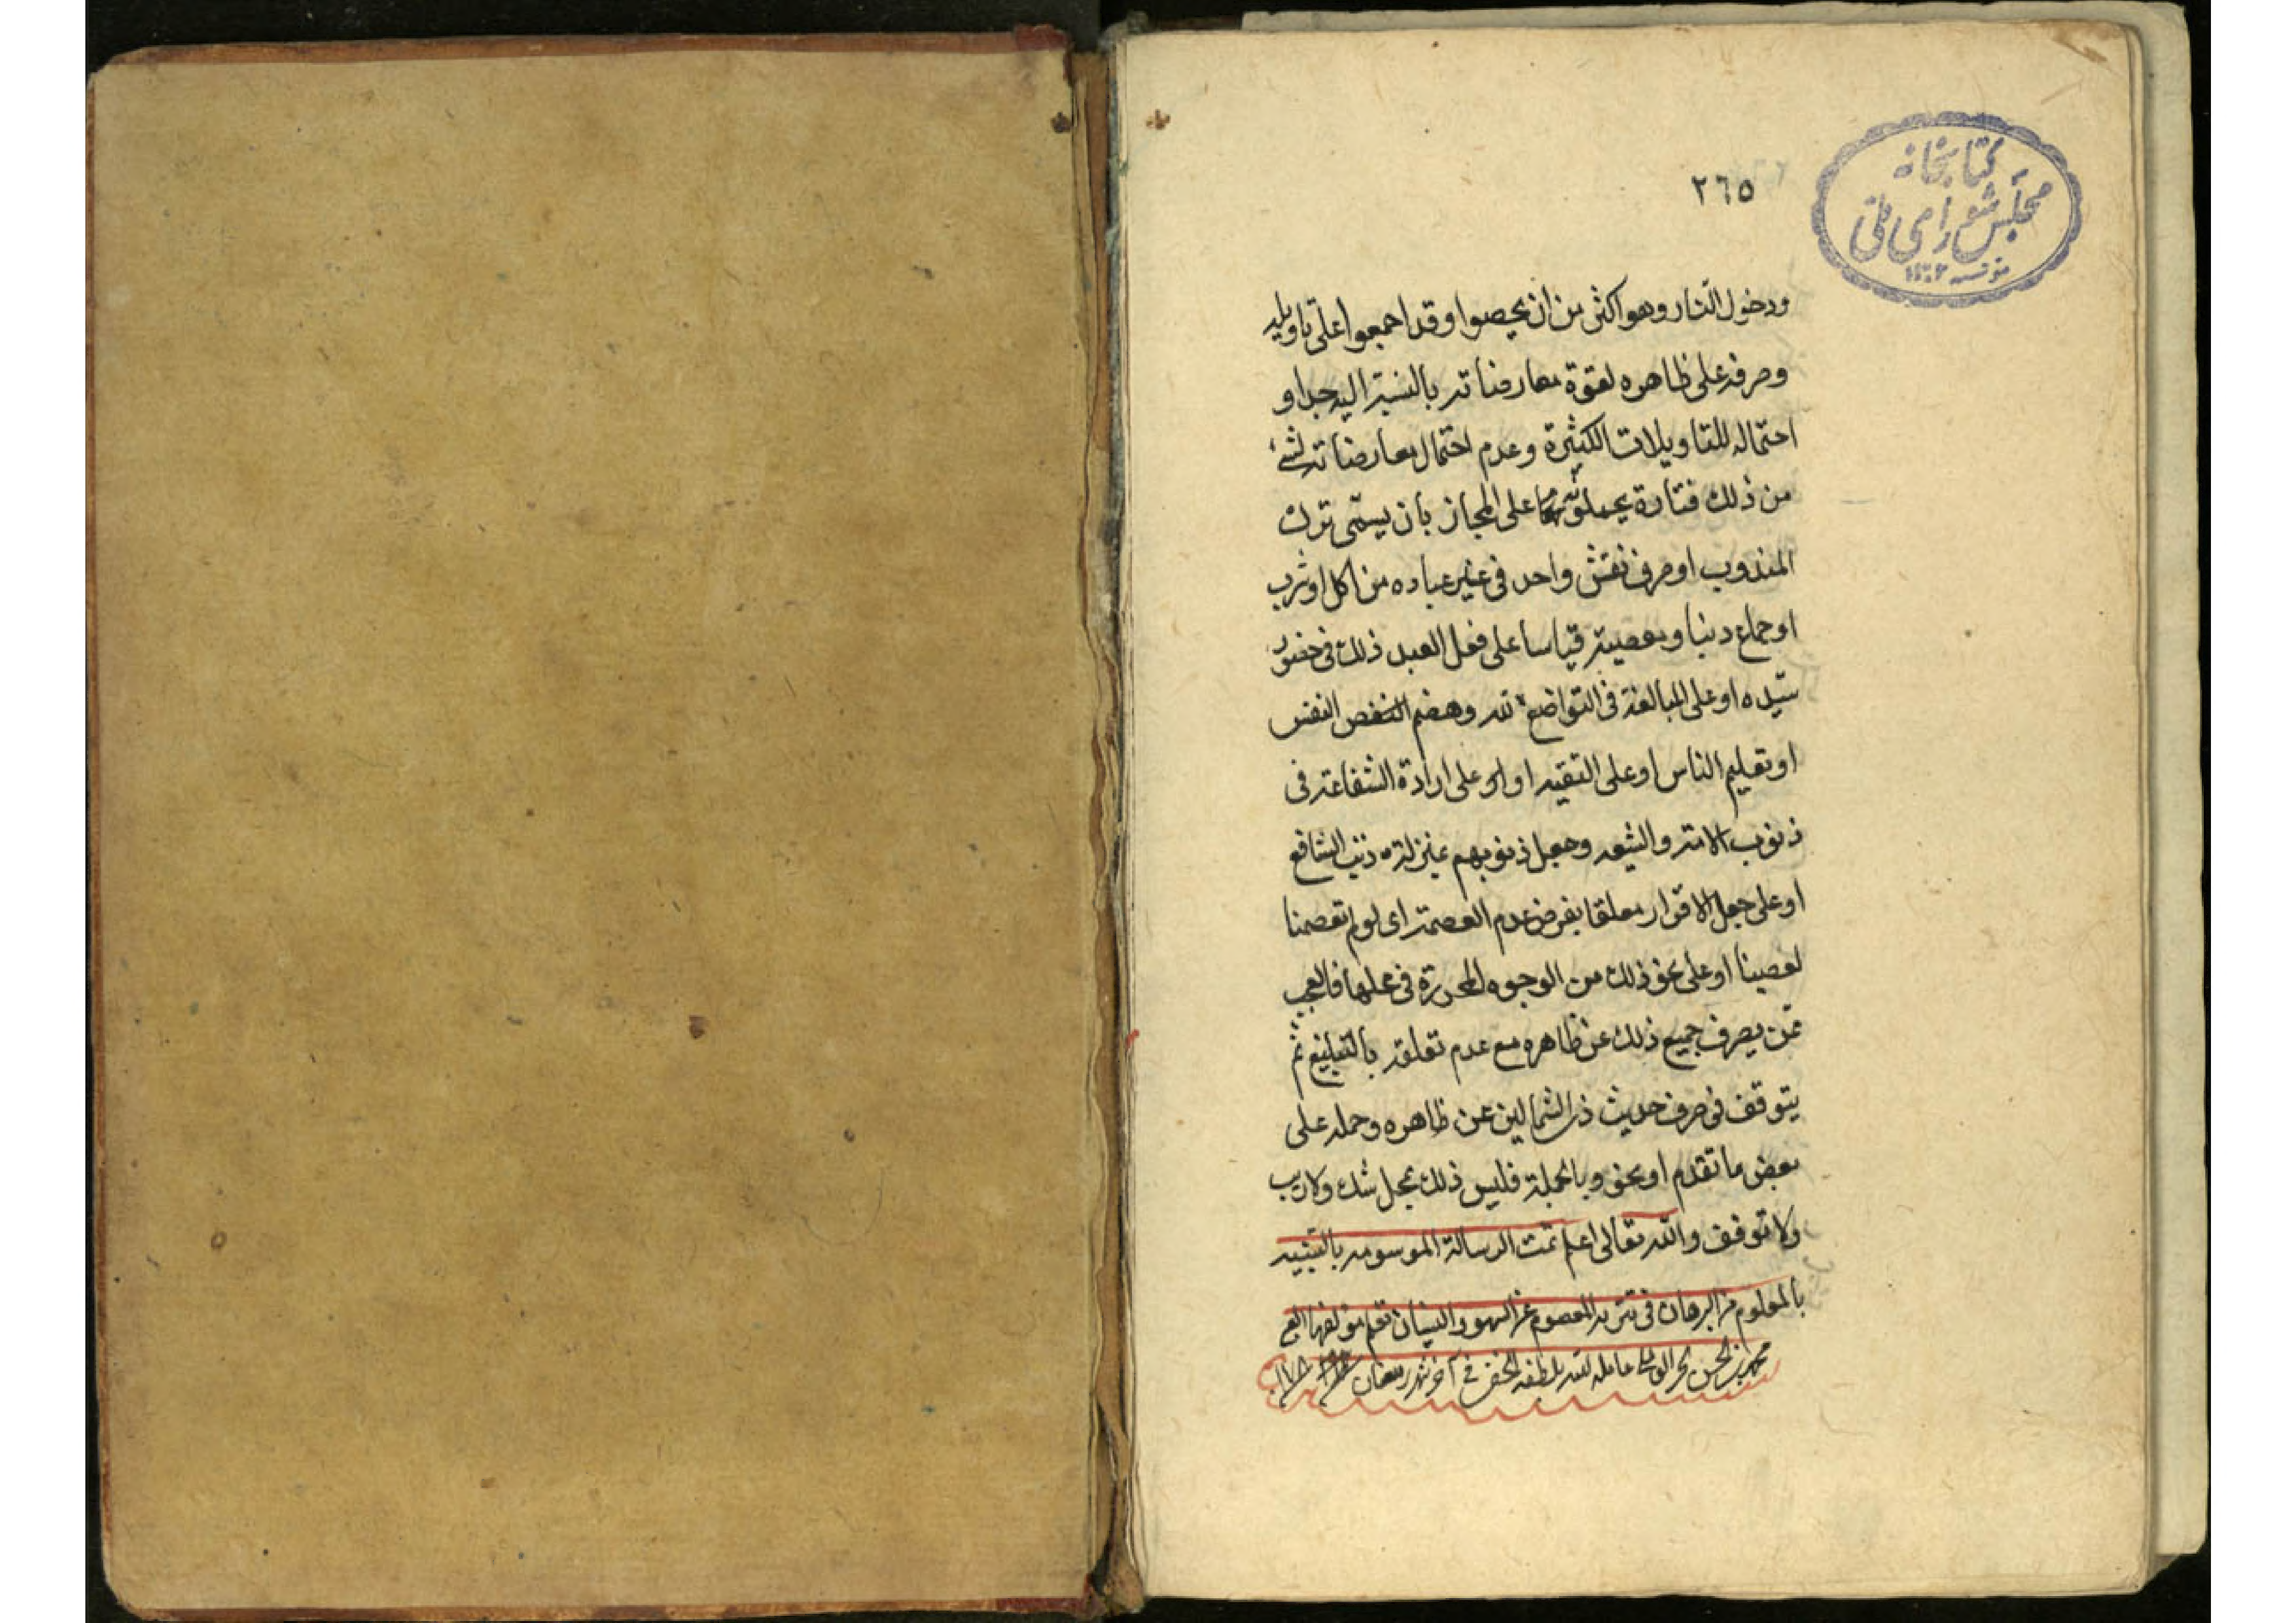 ٢٦٥
كتابخانه
مجلس شورای ملی
ودخول النار وهو اكثر من ان يحصوا وقد اجمعوا على تاويله
وصرفه على ظاهره لقوة معارضاته بالنسبة اليه جدا و
احتماله للتاويلات الكثيرة وعدم احتمال معارضاته لشئ
من ذلك فتارة يحملونه على المجاز بان يسمى ترك
المندوب او صرف نفس واحد في غير عباده من اكل او شرب
او جماع دينا ومعصية قياسا على فعل العبد ذلك في حضور
سيده او على المبالغة في التواضع لله وهضم النفس
او تعليم الناس او على التقيه او على ارادة الشفاعة في
ذنوب الامة والشيعه وجعل ذنوبهم بمنزلة ذنب الشافع
او على جعل الاقرار معلقا بفرض عدم العصمة اى لو لم تعصمنا
لعصينا او على نحو ذلك من الوجوه المحررة في محلها فالعجب
ممن يصرف جميع ذلك عن ظاهره مع عدم تعلقه بالتبليغ ثم
يتوقف في صرف حديث ذى الشمالين عن ظاهره وحمله على
بعض ما تقدم او نحو وبالجملة فليس ذلك بمحل شك ولا ريب
ولا توقف والله تعالى اعلم تمت الرسالة الموسومه بالتنبيه
بالمعلوم من البرهان في تنزيه المعصوم عن السهو والنسيان بقلم مؤلفها
محمد بن الحسن الحر عامله الله بلطفه الخفي في آخر شهر رمضان